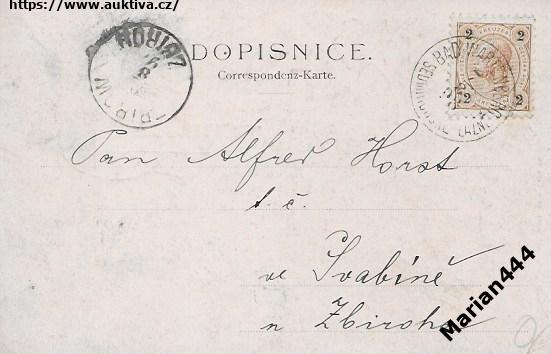 https://www.auktiva.cz/
DOPISNICE.
Correspondenz-Karte.
2 KREUZER 2
2 2
ZBIROH
BAD WARTENBERG
LÁZNĚ
Pan Alfred Horst
t. č.
ve Švabíně
u Zbiroha
Marian444